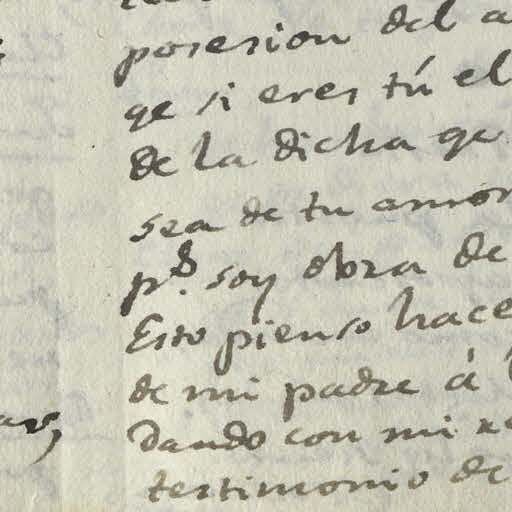 posesion del a
qe si eres tú el
de la dicha qe
sea de tu amor
ps. soy obra de
Esto pienso hace
de mi padre á
ar,
dando con mi
testimonio de